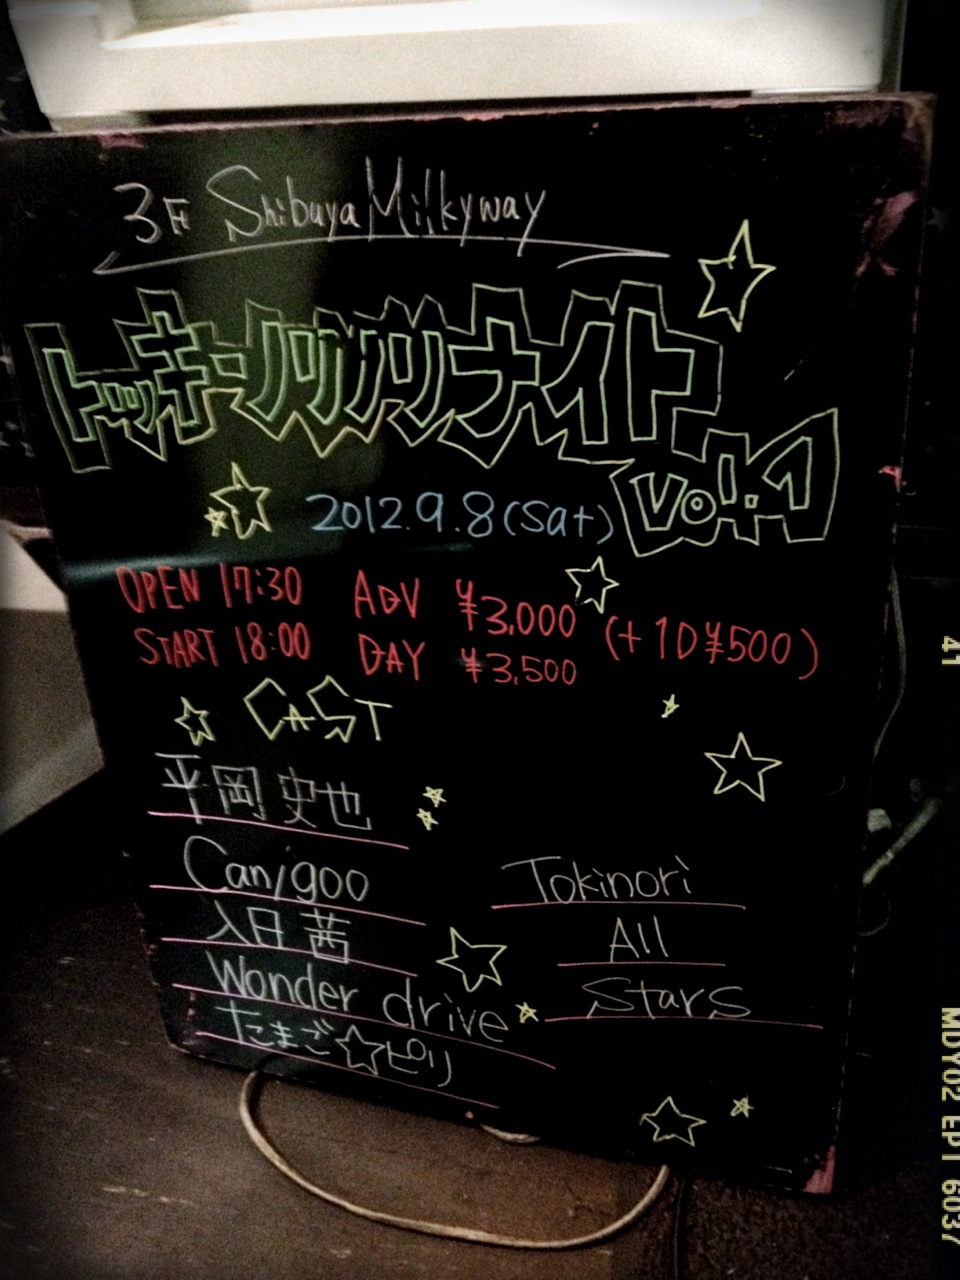 3F Shibuya Milkyway
トッキーノリノリナイト
Vol.1
2012.9.8(Sat)
OPEN 17:30 ADV ¥3,000 (+1D¥500)
START 18:00 DAY ¥3,500
CAST
平岡史也
Can/goo
入日茜
Wonder drive
たまご☆ピリ
Tokinori
All
Stars
41
MDY02 EPT 6037